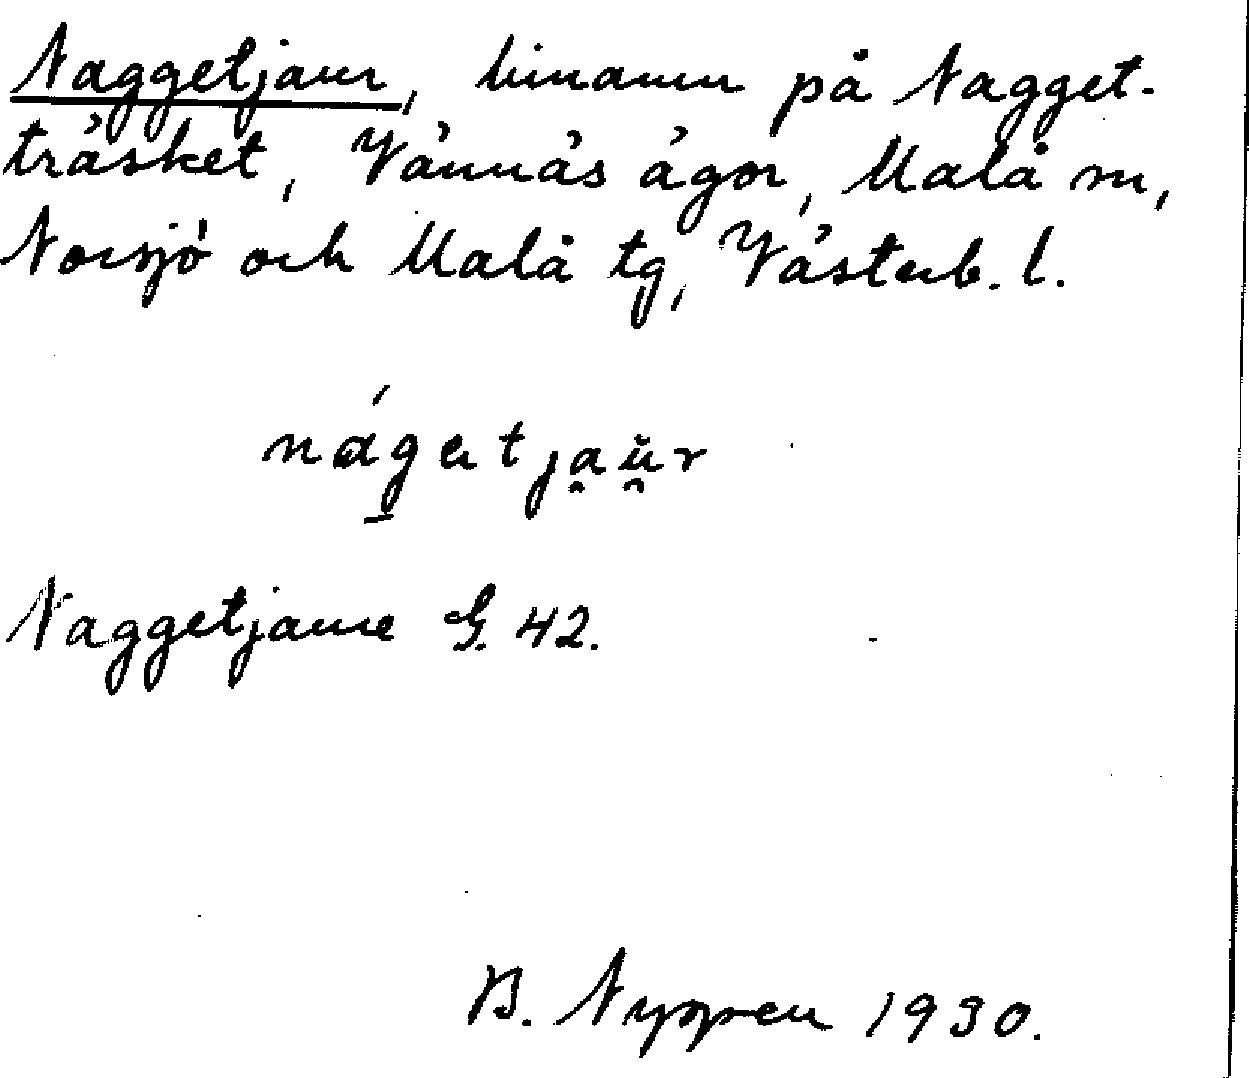 Naggetjaur, binamn på Nagget-
träsket, Vännäs ägor, Malå sn,
Norsjö och Malå tg, Västerb. l.
Naggetjaure G. 42.
B. Nyman 1930.